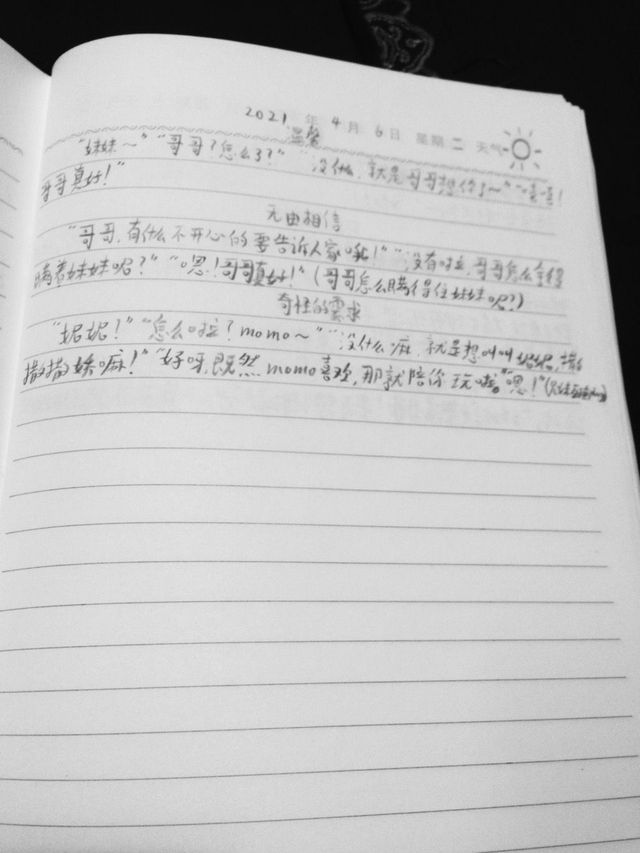 2021 年 4 月 6 日 星期 二 天气
温馨
“妹妹～”“哥哥?怎么了?”“没什么,就是哥哥想你了～”“嘻嘻!
哥哥真好!”
无由相信
“哥哥,有什么不开心的要告诉人家哦!”“没有啦,哥哥怎么舍得
瞒着妹妹呢?”“嗯!哥哥真好!”(哥哥怎么瞒得住妹妹呢?)
奇怪的需求
“妮妮!”“怎么啦?momo～”“没什么嘛,就是想叫叫妮妮,撒
撒娇嘛!”“好呀,既然momo喜欢,那就陪你玩啦。”“嗯!”